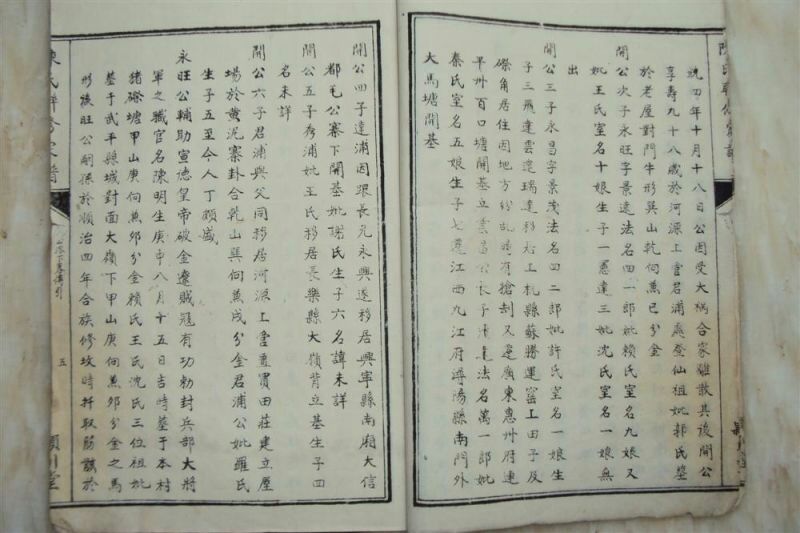 年十月十八日公因受大禍合家離散其後開公
享寿九十八歲於河源上官君浦處登仙祖妣郭氏塟
於老屋對門牛形巽山乾向兼巳分金
開公次子永旺字景達法名四一郎妣賴氏室名九娘又
妣王氏室名十娘生子一憲達三妣沈氏室名一娘無
出
開公三子永昌字景茂法名四二郎妣許氏室名一娘生
子三飛達雲達瑞達移居上杭縣蘇勝運窰上田子及
磜角居住因地方紛乱時有搶刼又遷廣東惠州府連
平州百口塘開基立業昌公長子達法名萬一郎妣
秦氏室名五娘生子七遷江西九江府潯陽縣南門外
大馬塘開基
開公四子達浦因琅長元永興遂移居興寧縣南廂大信
都毛公寨下開基妣謝氏生子六名諱未詳
開公五子秀浦妣王氏移居長樂縣大嶺背立基生子四
名未詳
開公六子君浦與父同移居河源上官置買田莊建立屋
場於黄沙寨卦合乾山巽向兼戌分金君浦公妣羅氏
生子五至今人丁頗盛
永旺公輔助宣德皇帝破金遼賊冦有功勅封兵部大將
軍之職官名陳明生庚申八月十五日吉時塟于本村
豬磜塘甲山庚向兼卯分金賴氏王氏沈氏三位祖妣
塟于武平縣城對面大嶺下甲山庚向兼卯分金之馬
形後旺公嗣孫於順治四年合族修坟時扦取筋骸於
五